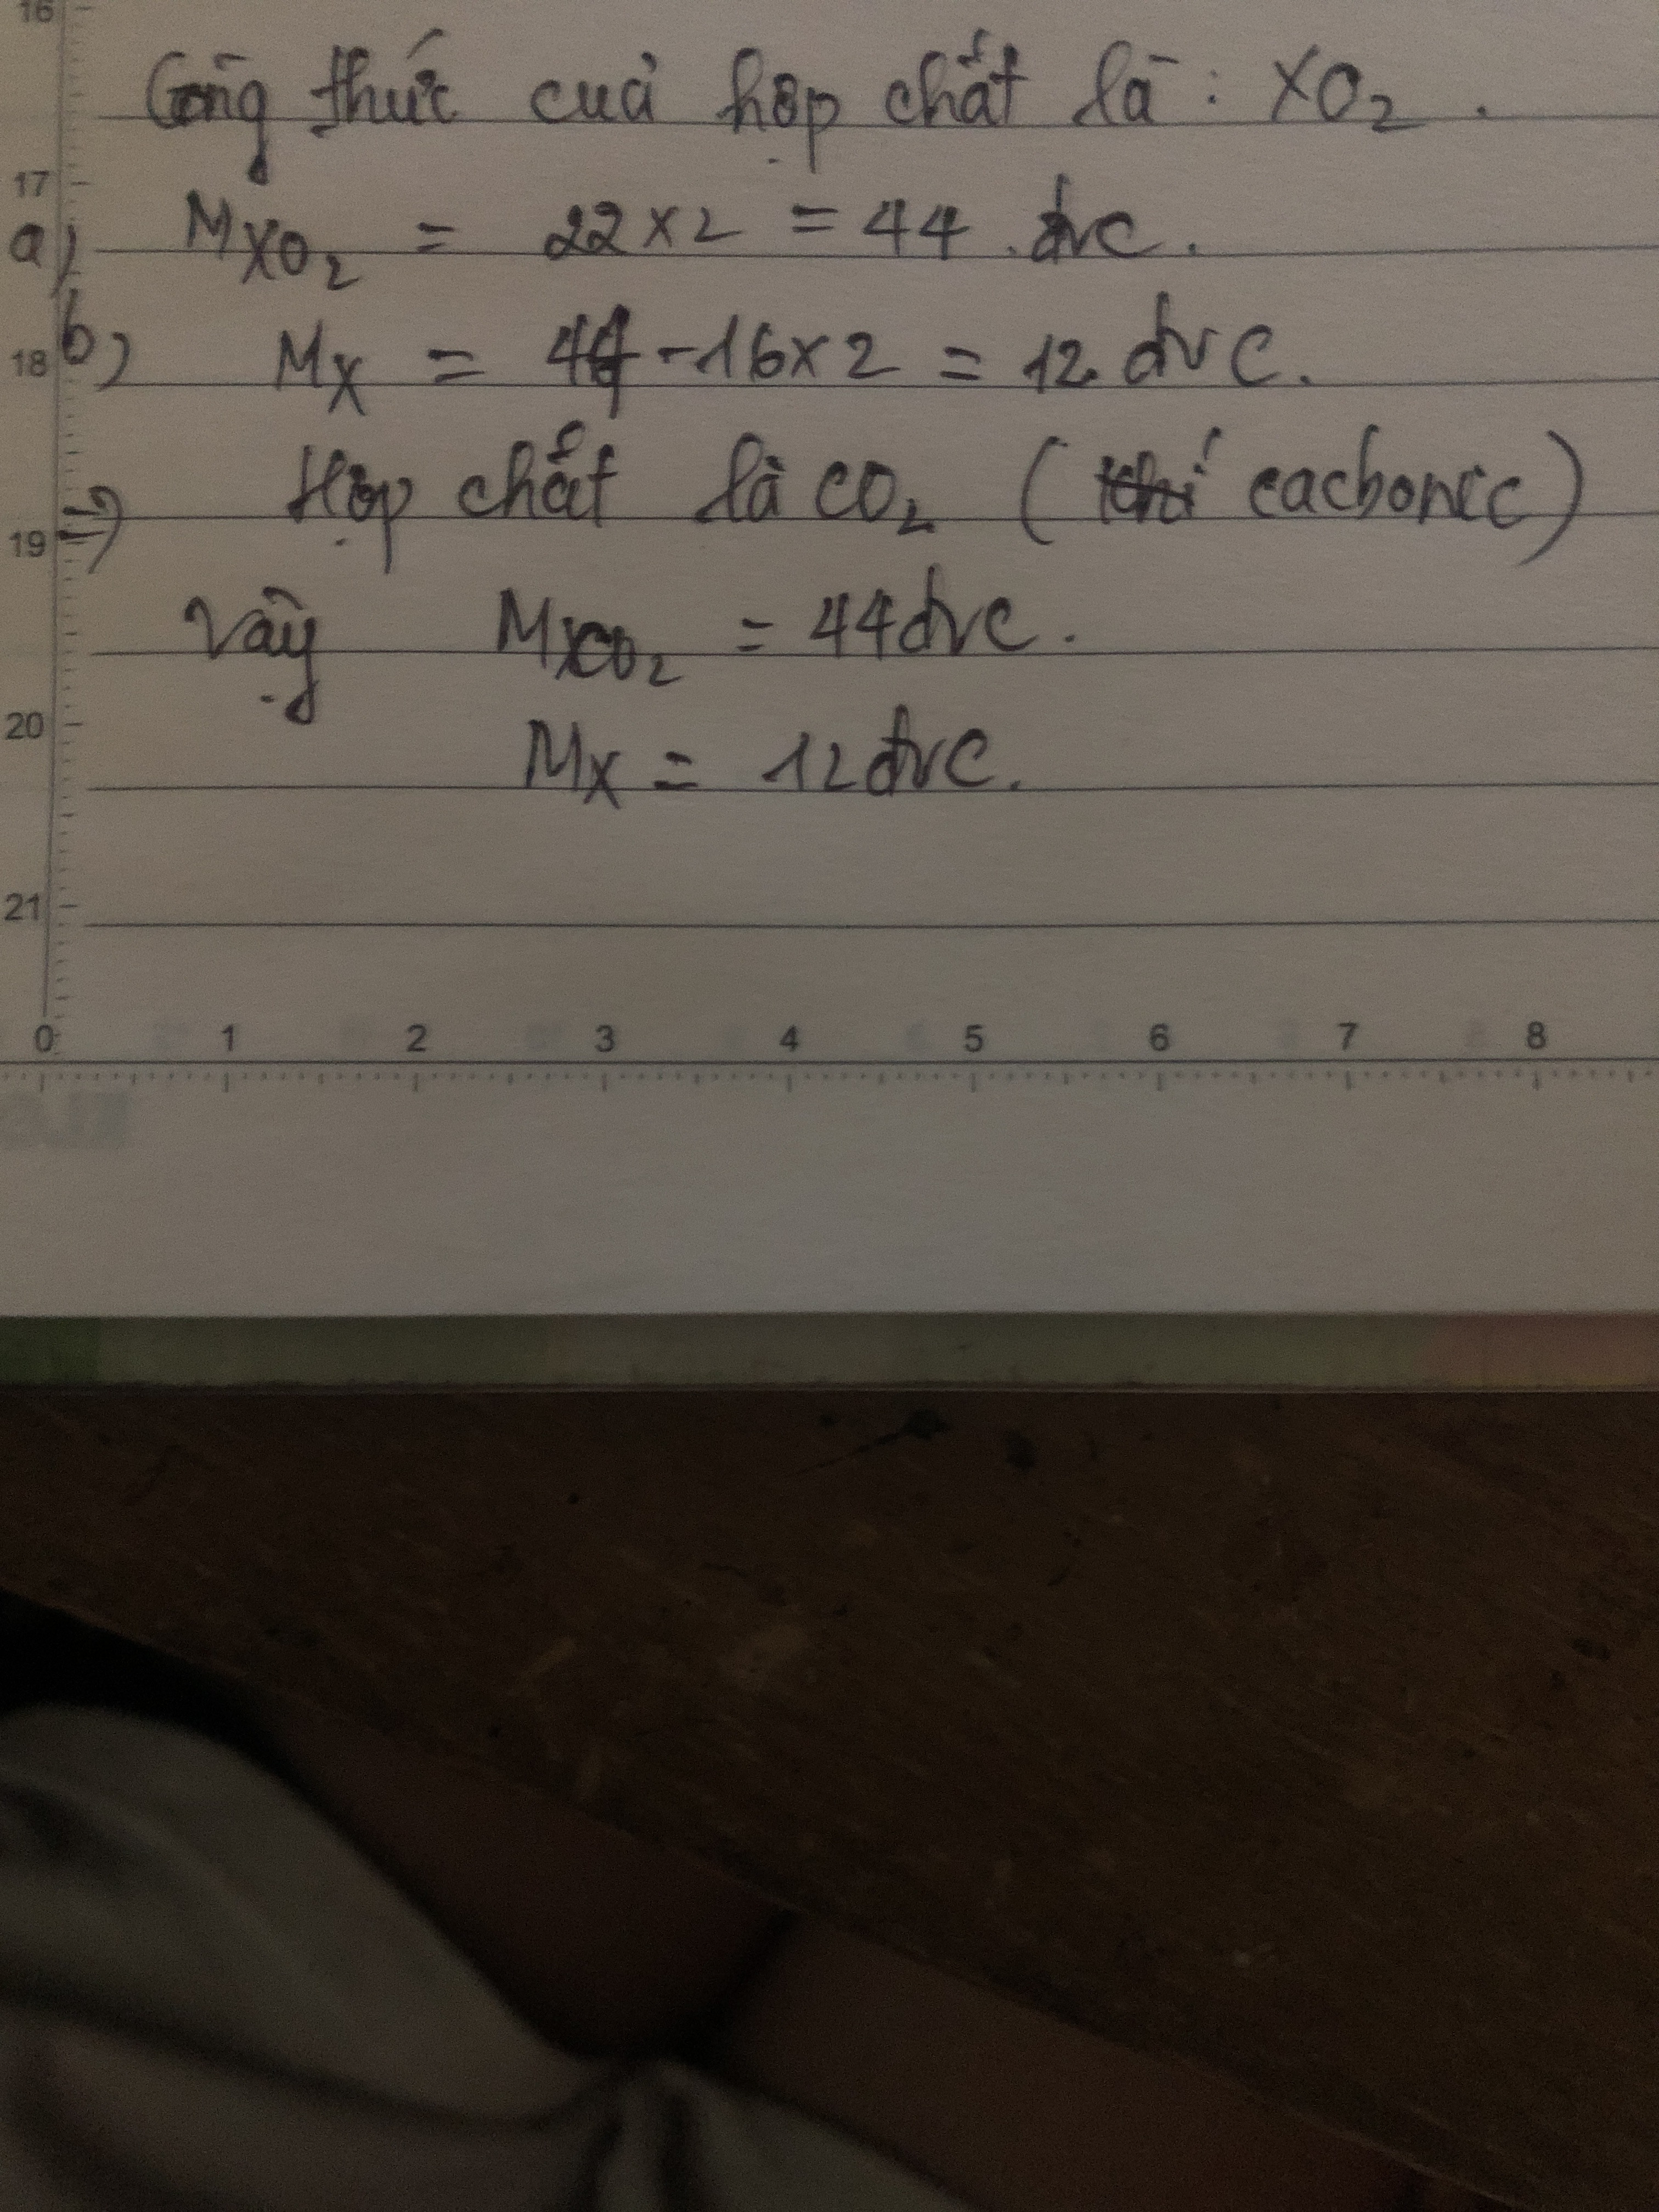 16
Công thức của hợp chất là: XO₂.
17
a) M XO₂ = 22 x 2 = 44 đvc.
18 b) Mx = 44 - 16 x 2 = 12 đvc.
19 => Hợp chất là CO₂ (khí cacbonic)
Vậy M XCO₂ = 44 đvc.
20
Mx = 12 đvc.
21
0 1 2 3 4 5 6 7 8